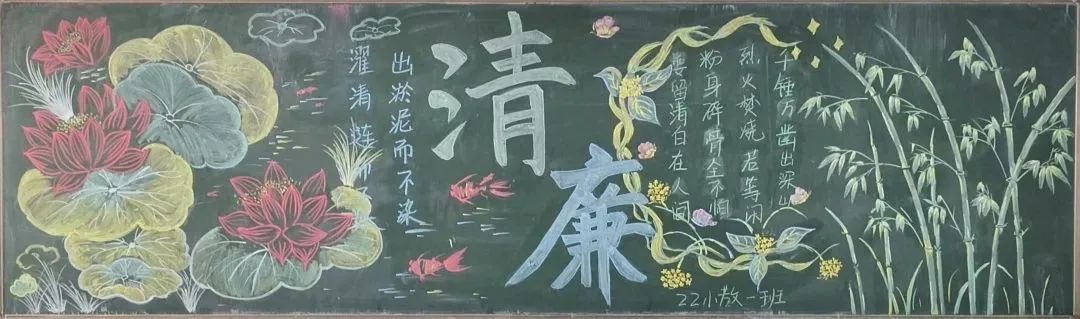 出淤泥而不染
濯清涟而不
清廉
千锤万凿出深山
烈火焚烧若等闲
粉身碎骨全不怕
要留清白在人间
22小教一班